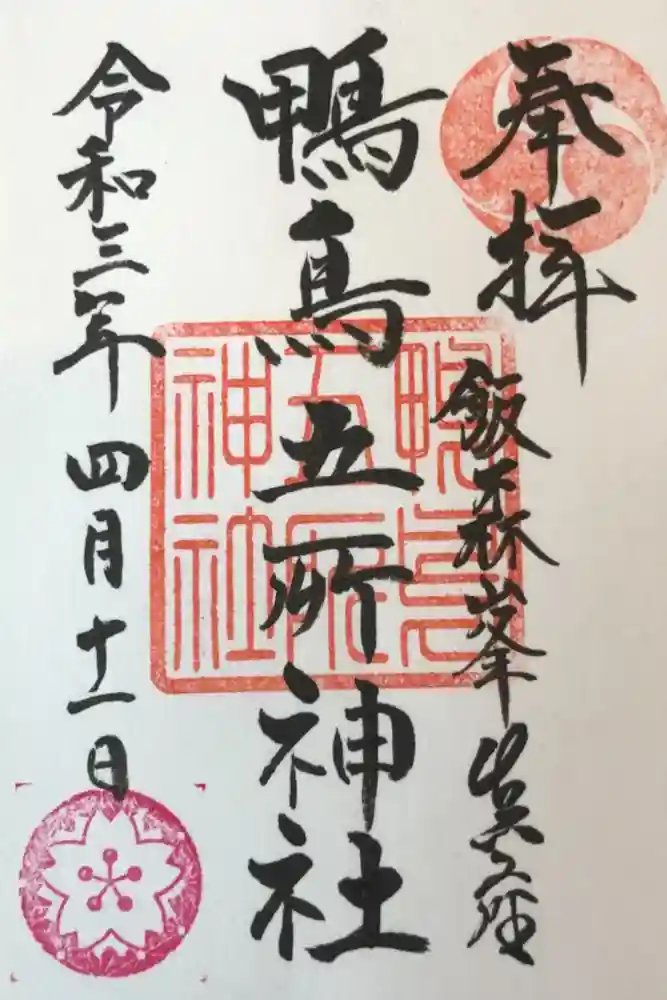 奉拝
飯森峯 座
鴨鳥五所神社
鴨鳥五所神社
令和三年 四月十一日